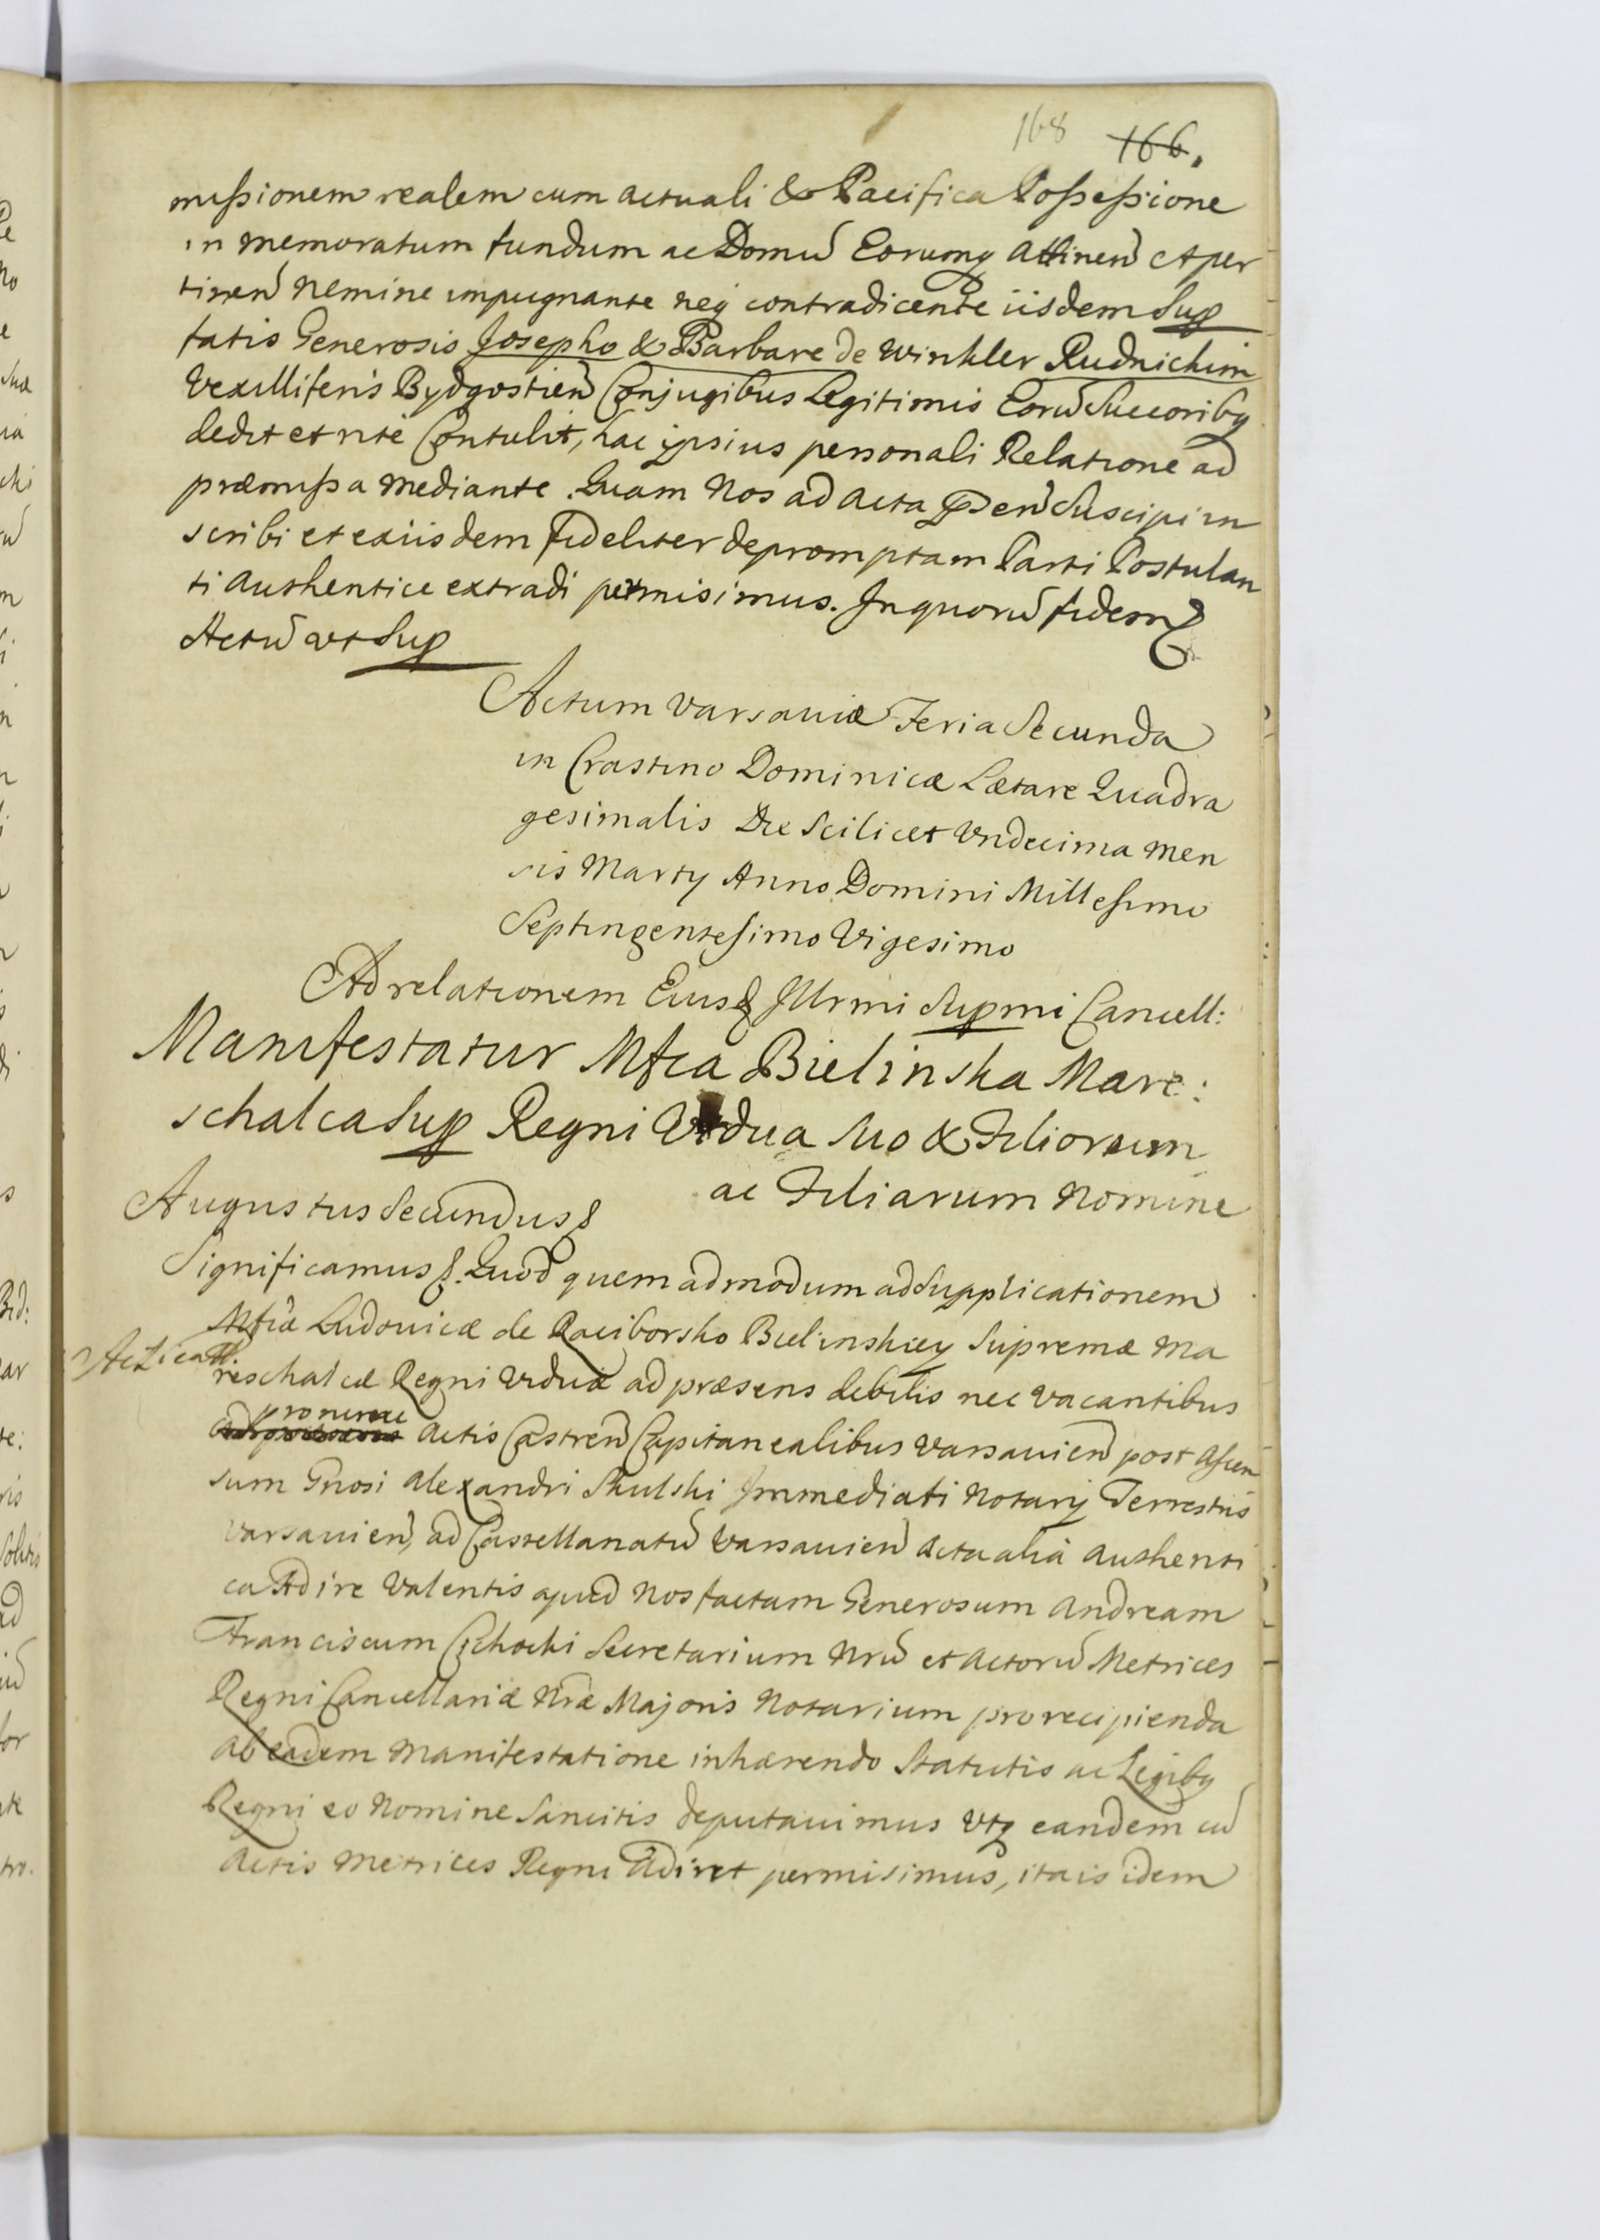 168 166.
missionem realem cum actuali & Pacifica Possessione
in memoratum fundum ac Domũ Eorumq attinen̄ et per
tinen̄ nemine impugnante neq contradicente iisdem Sup
fatis Generosis Josepho & Barbare de Winkler Rudnickim
Vexilliferis Bydgostien̄ Conjugibus Legitimis Eorũ Succoribq
dedit et rite Contulit, hac ipsius personali Relatione ad
præmissa mediante. Quam Nos ad Acta pñ̄en̄ Suscipi in
scribi et exiisdem fideliter depromptam Parti Postulan
ti authentice extradi permisimus. In quorũ fidem &
Actũ ut Sup
Actum Varsaviæ Feria Secunda
in Crastino Dominicæ Lætare Quadra
gesimalis Die Scilicet Undecima Men
sis Martij Anno Domini Millesimo
Septingentesimo Vigesimo
Ad relationem Eiusd Illrmi Supmi Cancell:
Manifestatur Mfca Bielinska Mare:
schalca Sup Regni Vidua Suo & Filiorum
ac Filiarum Nomine
Augustus Secundus &
Significamus &. Quod quem admodum ad Supplicationem
Mficæ Ludovicæ de Raciborsko Bielinskiey Supremæ Ma
reschalcæ Regni Viduæ ad præsens debilis nec vacantibus
pronunc
actis Castren̄ Capitanealibus Varsavien̄ post Ascen
sum Gnosi Alexandri Skulski Immediati Notarij Terrestris
Varsavien̄, ad Castellanatũ Varsavien̄ Acta alia Authenti
ca Adire Valentis apud Nos factam Generosum Andream
Franciscum Cichocki Secretarium Nrũ et Actorũ Metrices
Regni Cancellariæ Nræ Majoris Notarium pro recipienda
ab eadem Manifestatione inhærendo Statutis ac Legibq
Regni eo Nomine Sancitis deputavimus Utq eandem cũ
Actis Metrices Regni Adiret permisimus, ita is idem